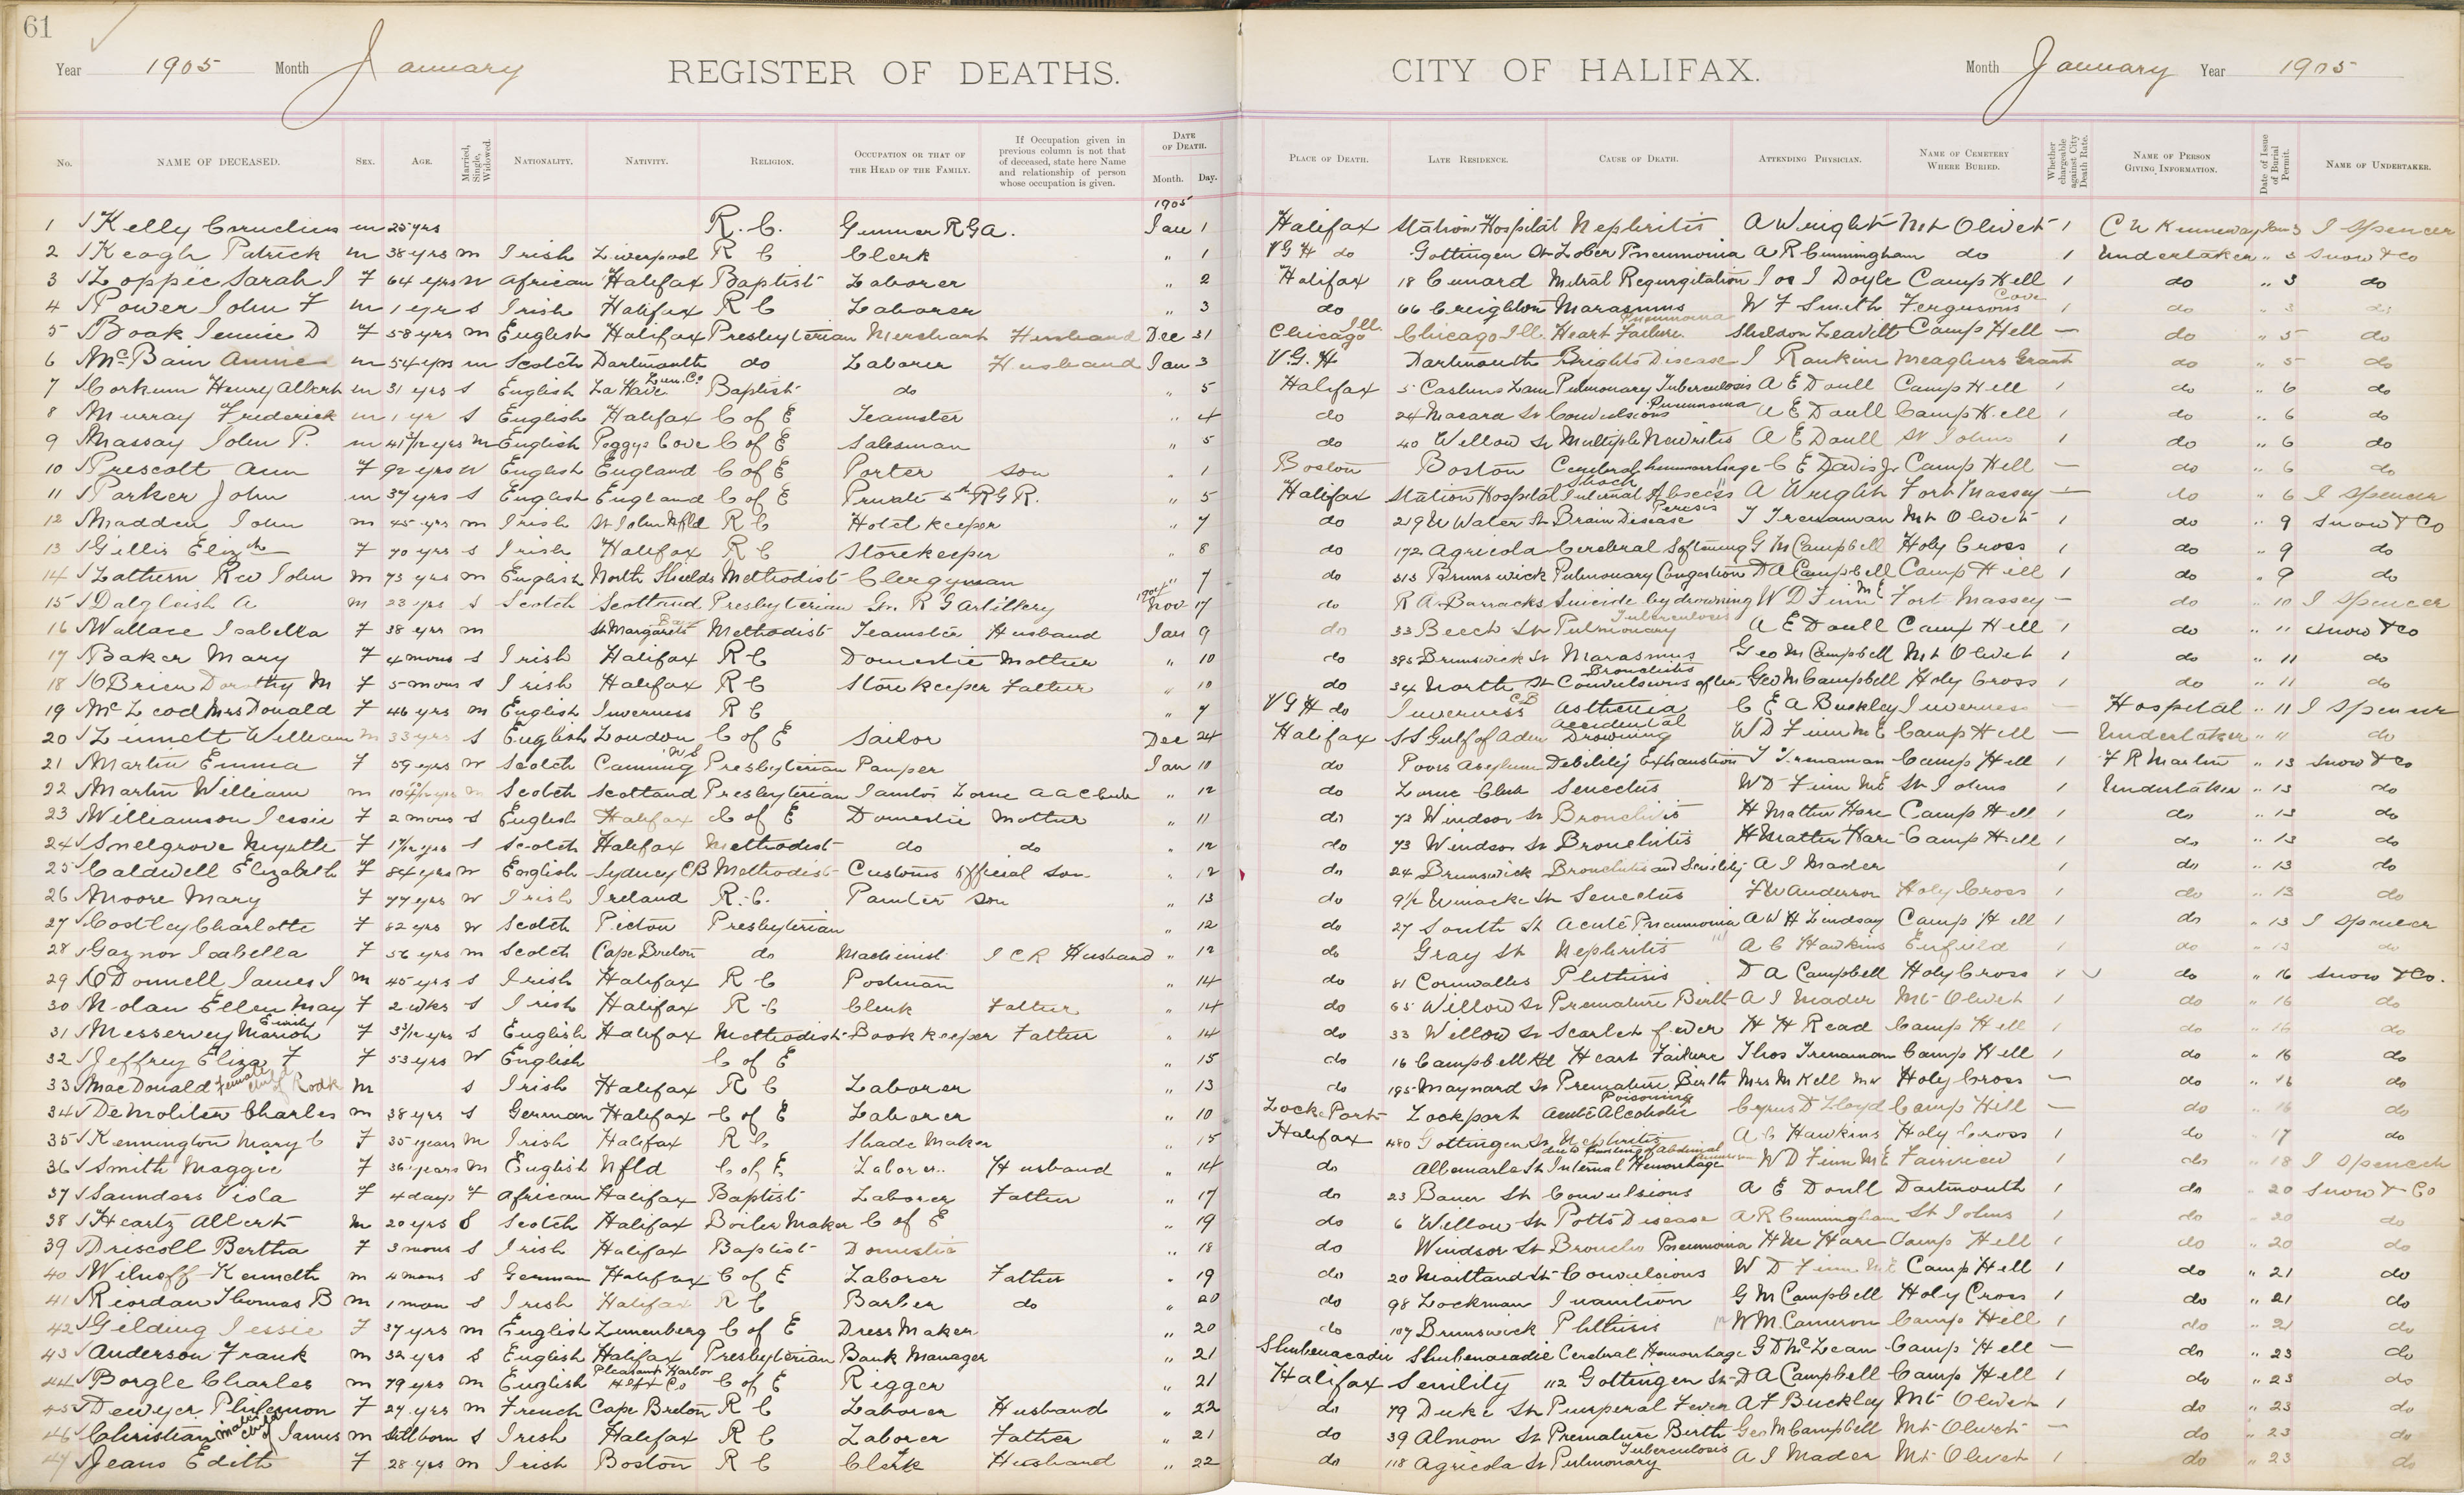 61
Year 1905 Month January REGISTER OF DEATHS. CITY OF HALIFAX. Month January Year 1905
No. NAME OF DECEASED. SEX. AGE. Married, Single, Widowed. NATIONALITY. NATIVITY. RELIGION. OCCUPATION OR THAT OF THE HEAD OF THE FAMILY. If Occupation given in previous column is not that of deceased, state here Name and relationship of person whose occupation is given. DATE OF DEATH. Month. Day. PLACE OF DEATH. LATE RESIDENCE. CAUSE OF DEATH. ATTENDING PHYSICIAN. NAME OF CEMETERY WHERE BURIED. Whether chargeable against City Death Rate. NAME OF PERSON GIVING INFORMATION. Date of Issue of Burial Permit. NAME OF UNDERTAKER.
1 Kelly Cornelius m 25 yrs R. C. Gunner R G A. 1905 Jan 1 Halifax Station Hospital Nephritis A Wright Mt Olivet 1 Jan 3 J Spencer
2 Keogh Patrick m 38 yrs m Irish Liverpool R C Clerk " 1 V G H do Gottingen St Lober Pneumonia A R Cunningham do 1 Undertaker " 3 Snow & Co
3 Loppie Sarah J F 64 yrs W African Halifax Baptist Laborer " 2 Halifax 18 Cunard Mitral Regurgitation Jos J Doyle Camp Hill 1 do " 3 do
4 Power John F m 1 yr S Irish Halifax R C Laborer " 3 do 66 Creighton Marasmus W F Smith Fergusons Cove 1 do " 3 do
5 Boak Jennie D F 58 yrs m English Halifax Presbyterian Merchant Husband Dec 31 Chicago Ill. Chicago Ill. Pneumonia Heart Failure Sheldon Leavitt Camp Hill — do " 5 do
6 McBain Annie m 54 yrs m Scotch Dartmouth do Laborer Husband Jan 3 V. G. H Dartmouth Brights Disease J Rankin Meaghers Grant do " 5 do
7 Corkum Henry Albert m 31 yrs S English La Have Lun. Co Baptist do " 5 Halifax 5 Lane Pulmonary Tuberculosis A E Doull Camp Hill 1 do " 6 do
8 Murray Frederick m 1 yr S English Halifax C of E Teamster " 4 do 24 Macara St Convulsions Pneumonia A E Doull Camp Hill 1 do " 6 do
9 Massay John P. m 41 3/12 yrs m English Peggys Cove C of E Salesman " 5 do 40 Willow St Multiple Neuritis A E Doull St Johns 1 do " 6 do
10 Prescott Ann F 92 yrs W English England C of E Porter son " 1 Boston Boston Cerebral hemorrhage C E Davis Jr Camp Hill — do " 6 do
11 Parker John m 37 yrs S English England C of E Private 5th R G R. " 5 Halifax Station Hospital Shock Internal Abscess A Wright Fort Massey — do " 6 J Spencer
12 Madden John m 45 yrs m Irish St John Nfld R C Hotel keeper " 7 do 219 U Water St Brain Disease Paresis T Trenaman Mt Olivet 1 do " 9 Snow & Co
13 Gillis Elizth F 70 yrs S Irish Halifax R C Storekeeper " 8 do 172 Agricola Cerebral Softening G M Campbell Holy Cross 1 do " 9 do
14 Lathern Rev John m 73 yrs m English North Shields Methodist Clergyman " 7 do 313 Brunswick Pulmonary Congestion D A Campbell Camp Hill 1 do " 9 do
15 Dalgleish A m 23 yrs S Scotch Scotland Presbyterian Gr. R G Artillery 1904 Nov 17 do R A Barracks Suicide by drowning W D Finn M E Fort Massey — do " 10 J Spencer
16 Wallace Isabella F 38 yrs m St Margarets Bay Methodist Teamster Husband Jan 9 do 33 Beech St Pulmonary Tuberculosis A E Doull Camp Hill 1 do " 11 Snow & Co
17 Baker Mary F 4 mons S Irish Halifax R C Domestic Mother " 10 do 395 Brunswick St Marasmus Geo M Campbell Mt Olivet 1 do " 11 do
18 O'Brien Dorothy M F 5 mons S Irish Halifax R C Storekeeper Father " 10 do 34 North St Convulsions after Bronchitis Geo M Campbell Holy Cross 1 do " 11 do
19 McLeod Mrs Donald F 46 yrs m English Inverness R C " 7 V G H do Inverness C B Asthenia C E A Buckley Inverness — Hospital " 11 J Spencer
20 Linnett William m 33 yrs S English London C of E Sailor Dec 24 Halifax S S Gulf of Aden Accidental Drowning W D Finn M E Camp Hill — Undertaker " 11 do
21 Martin Emma F 59 yrs W Scotch Canning N S Presbyterian Pauper Jan 10 do Poors Asylum Debility Exhaustion T Trenaman Camp Hill 1 F R Martin " 13 Snow & Co
22 Martin William m m Scotch Scotland Presbyterian Janitor Lorne A A Club " 12 do Lorne Club Senectus W D Finn M E St Johns 1 Undertaker " 13 do
23 Williamson Jessie F 2 mons S English Halifax C of E Domestic Mother " 11 do 72 Windsor St Bronchitis H Matten Hare Camp Hill 1 do " 13 do
24 Smelgrove Myrtle F S Scotch Halifax Methodist do do " 12 do 73 Windsor St Bronchitis H Matten Hare Camp Hill 1 do " 13 do
25 Caldwell Elizabeth F 84 yrs W English Sydney C B Methodist Customs Official Son " 12 do 24 Brunswick Bronchitis and Senility A I Mader 1 do " 13 do
26 Moore Mary F 77 yrs W Irish Ireland R. C. Painter Son " 13 do 9 1/2 Uniacke St Senectus F W Anderson Holy Cross 1 do " 13 do
27 Costley Charlotte F 62 yrs W Scotch Pictou Presbyterian " 12 do 27 South St Acute Pneumonia A W H Lindsay Camp Hill 1 do " 13 J Spencer
28 Gaynor Isabella F 56 yrs m Scotch Cape Breton do Machinist I C R Husband " 12 do Gray St Nephritis A C Hawkins Enfield 1 do " 13 do
29 O'Donnell James J m 45 yrs S Irish Halifax R C Postman " 14 do 81 Cornwallis Phthisis D A Campbell Holy Cross 1 do " 16 Snow & Co.
30 Nolan Ellen May F 2 wks S Irish Halifax R C Clerk Father " 14 do 65 Willow St Premature Birth A I Mader Mt Olivet 1 do " 16 do
31 Messervey Marion Emily F 3 3/12 yrs S English Halifax Methodist Bookkeeper Father " 14 do 33 Willow St Scarlet fever H H Read Camp Hill 1 do " 16 do
32 Jeffrey Eliza F F 53 yrs W English C of E " 15 do 16 Campbell Rd Heart Failure Thos Trenaman Camp Hill 1 do " 16 do
33 MacDonald female child of Rodk m S Irish Halifax R C Laborer " 13 do 195 Maynard St Premature Birth Mrs M Kell Mw Holy Cross — do " 16 do
34 DeMoliter Charles m 38 yrs S German Halifax C of E Laborer " 10 Locke Port Lockport Acute Alcoholic Poisoning Cyrus D Lloyd Camp Hill — do " 16 do
35 Kennington Mary C F 35 years m Irish Halifax R C Shade Maker " 15 Halifax 480 Gottingen St Nephritis A C Hawkins Holy Cross 1 do " 17 do
36 Smith Maggie F 36 years m English Nfld C of E Laborer Husband " 14 do Albemarle St Internal Hemorrhage W D Finn M E Fairview 1 do " 18 J Spencer
37 Saunders Viola F 4 days F African Halifax Baptist Laborer Father " 17 do 23 Bauer St Convulsions A E Doull Dartmouth 1 do " 20 Snow & Co
38 Heartz Albert m 20 yrs S Scotch Halifax Boiler Maker C of E " 19 do 6 Willow St Potts Disease A R Cunningham St Johns 1 do " 20 do
39 Driscoll Bertha F 3 mons S Irish Halifax Baptist Domestic " 18 do Windsor St Broncho Pneumonia H M Hare Camp Hill 1 do " 20 do
40 Wilnoff Kenneth m 4 mons S German Halifax C of E Laborer Father " 19 do 20 Maitland St Convulsions W D Finn M E Camp Hill 1 do " 21 do
41 Riordan Thomas B m 1 mon S Irish Halifax R C Barber do " 20 do 98 Lockman Inanition G M Campbell Holy Cross 1 do " 21 do
42 Gelding Jessie F 37 yrs m English Lunenburg C of E Dress Maker " 20 do 107 Brunswick Phthisis W M. Cameron Camp Hill 1 do " 21 do
43 Anderson Frank m 32 yrs S English Halifax Presbyterian Bank Manager " 21 Shubenacadie Shubenacadie Cerebral Hemorrhage G D McLean Camp Hill — do " 23 do
44 Borgle Charles m 79 yrs m English Pleasant Harbor Hfx Co C of E Rigger " 21 Halifax Senility 112 Gottingen St D A Campbell Camp Hill 1 do " 23 do
45 Dewyer Philemon F 27 yrs m French Cape Breton R C Laborer Husband " 22 do 79 Duke St Puerperal Fever A F Buckley Mt Olivet 1 do " 23 do
46 Christian male child of James m Stillborn S Irish Halifax R C Laborer Father " 21 do 39 Almon St Premature Birth Geo M Campbell Mt Olivet — do " 23 do
47 Jeans Edith F 28 yrs m Irish Boston R C Clerk Husband " 22 do 118 Agricola St Pulmonary Tuberculosis A I Mader Mt Olivet 1 do " 23 do